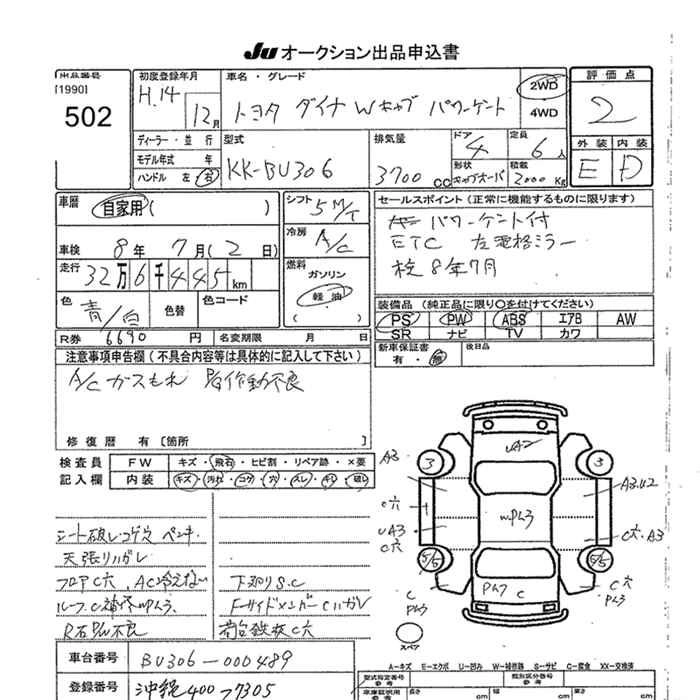 JU オークション出品申込書
出品番号
[1990]
502
初度登録年月
H.14
12月
車名・グレード
トヨタ ダイナ Wキャブ パワーゲート
2WD
4WD
評価点
2
ディーラー・並行
モデル年式 年
ハンドル 左 右
型式
KK-BU306
排気量
3700 CC
ドア
4
形状
キャブオーバ
定員
6人
積載
2000 Kg
外装 内装
E D
車歴
自家用( )
車検 8年 7月( 2日)
走行
32万6千445km
色
青/白
色替
色コード
シフト
5 M/T
冷房
A/C
燃料
ガソリン
軽油
( )
セールスポイント(正常に機能するものに限ります)
パワーゲート付
ETC 左電格ミラー
検8年7月
装備品(純正品に限り○を付けてください)
PS PW ABS エアB AW
SR ナビ TV カワ
R券 6690 円
名変期限 月 日
新車保証書
有・無
後日品
注意事項申告欄(不具合内容等は具体的に記入して下さい)
A/C ガスもれ 作動不良
修復歴 有〔箇所 〕
検査員
記入欄
FW キズ・飛石・ヒビ割・リペア跡・×要
内装 キズ・汚れ・コゲ・穴・スレ・キレ・破レ
シート破レコゲ穴 ペンキ
天張リハガレ
フロアC穴、AC冷えない
ルーフC補修WPん3
R右P/W不良
下廻りS.C
FサイドメンバーCハガレ
荷台鉄板C穴
UA2
A3
3
3
A3.U2
C穴
UA3
C穴
WPん3
C穴.A3
5/5
5/5
C
Pん3
Pん7 C
C穴
Pん3
スペア
車台番号
BU306-000489
登録番号
沖縄400 ワ305
A-キズ E-エクボ U-凹み W-補修跡 S-サビ C-腐食 XX-交換済
型式指定番号
参考
類別区分番号
参考
長さ cm
幅 cm
高さ cm